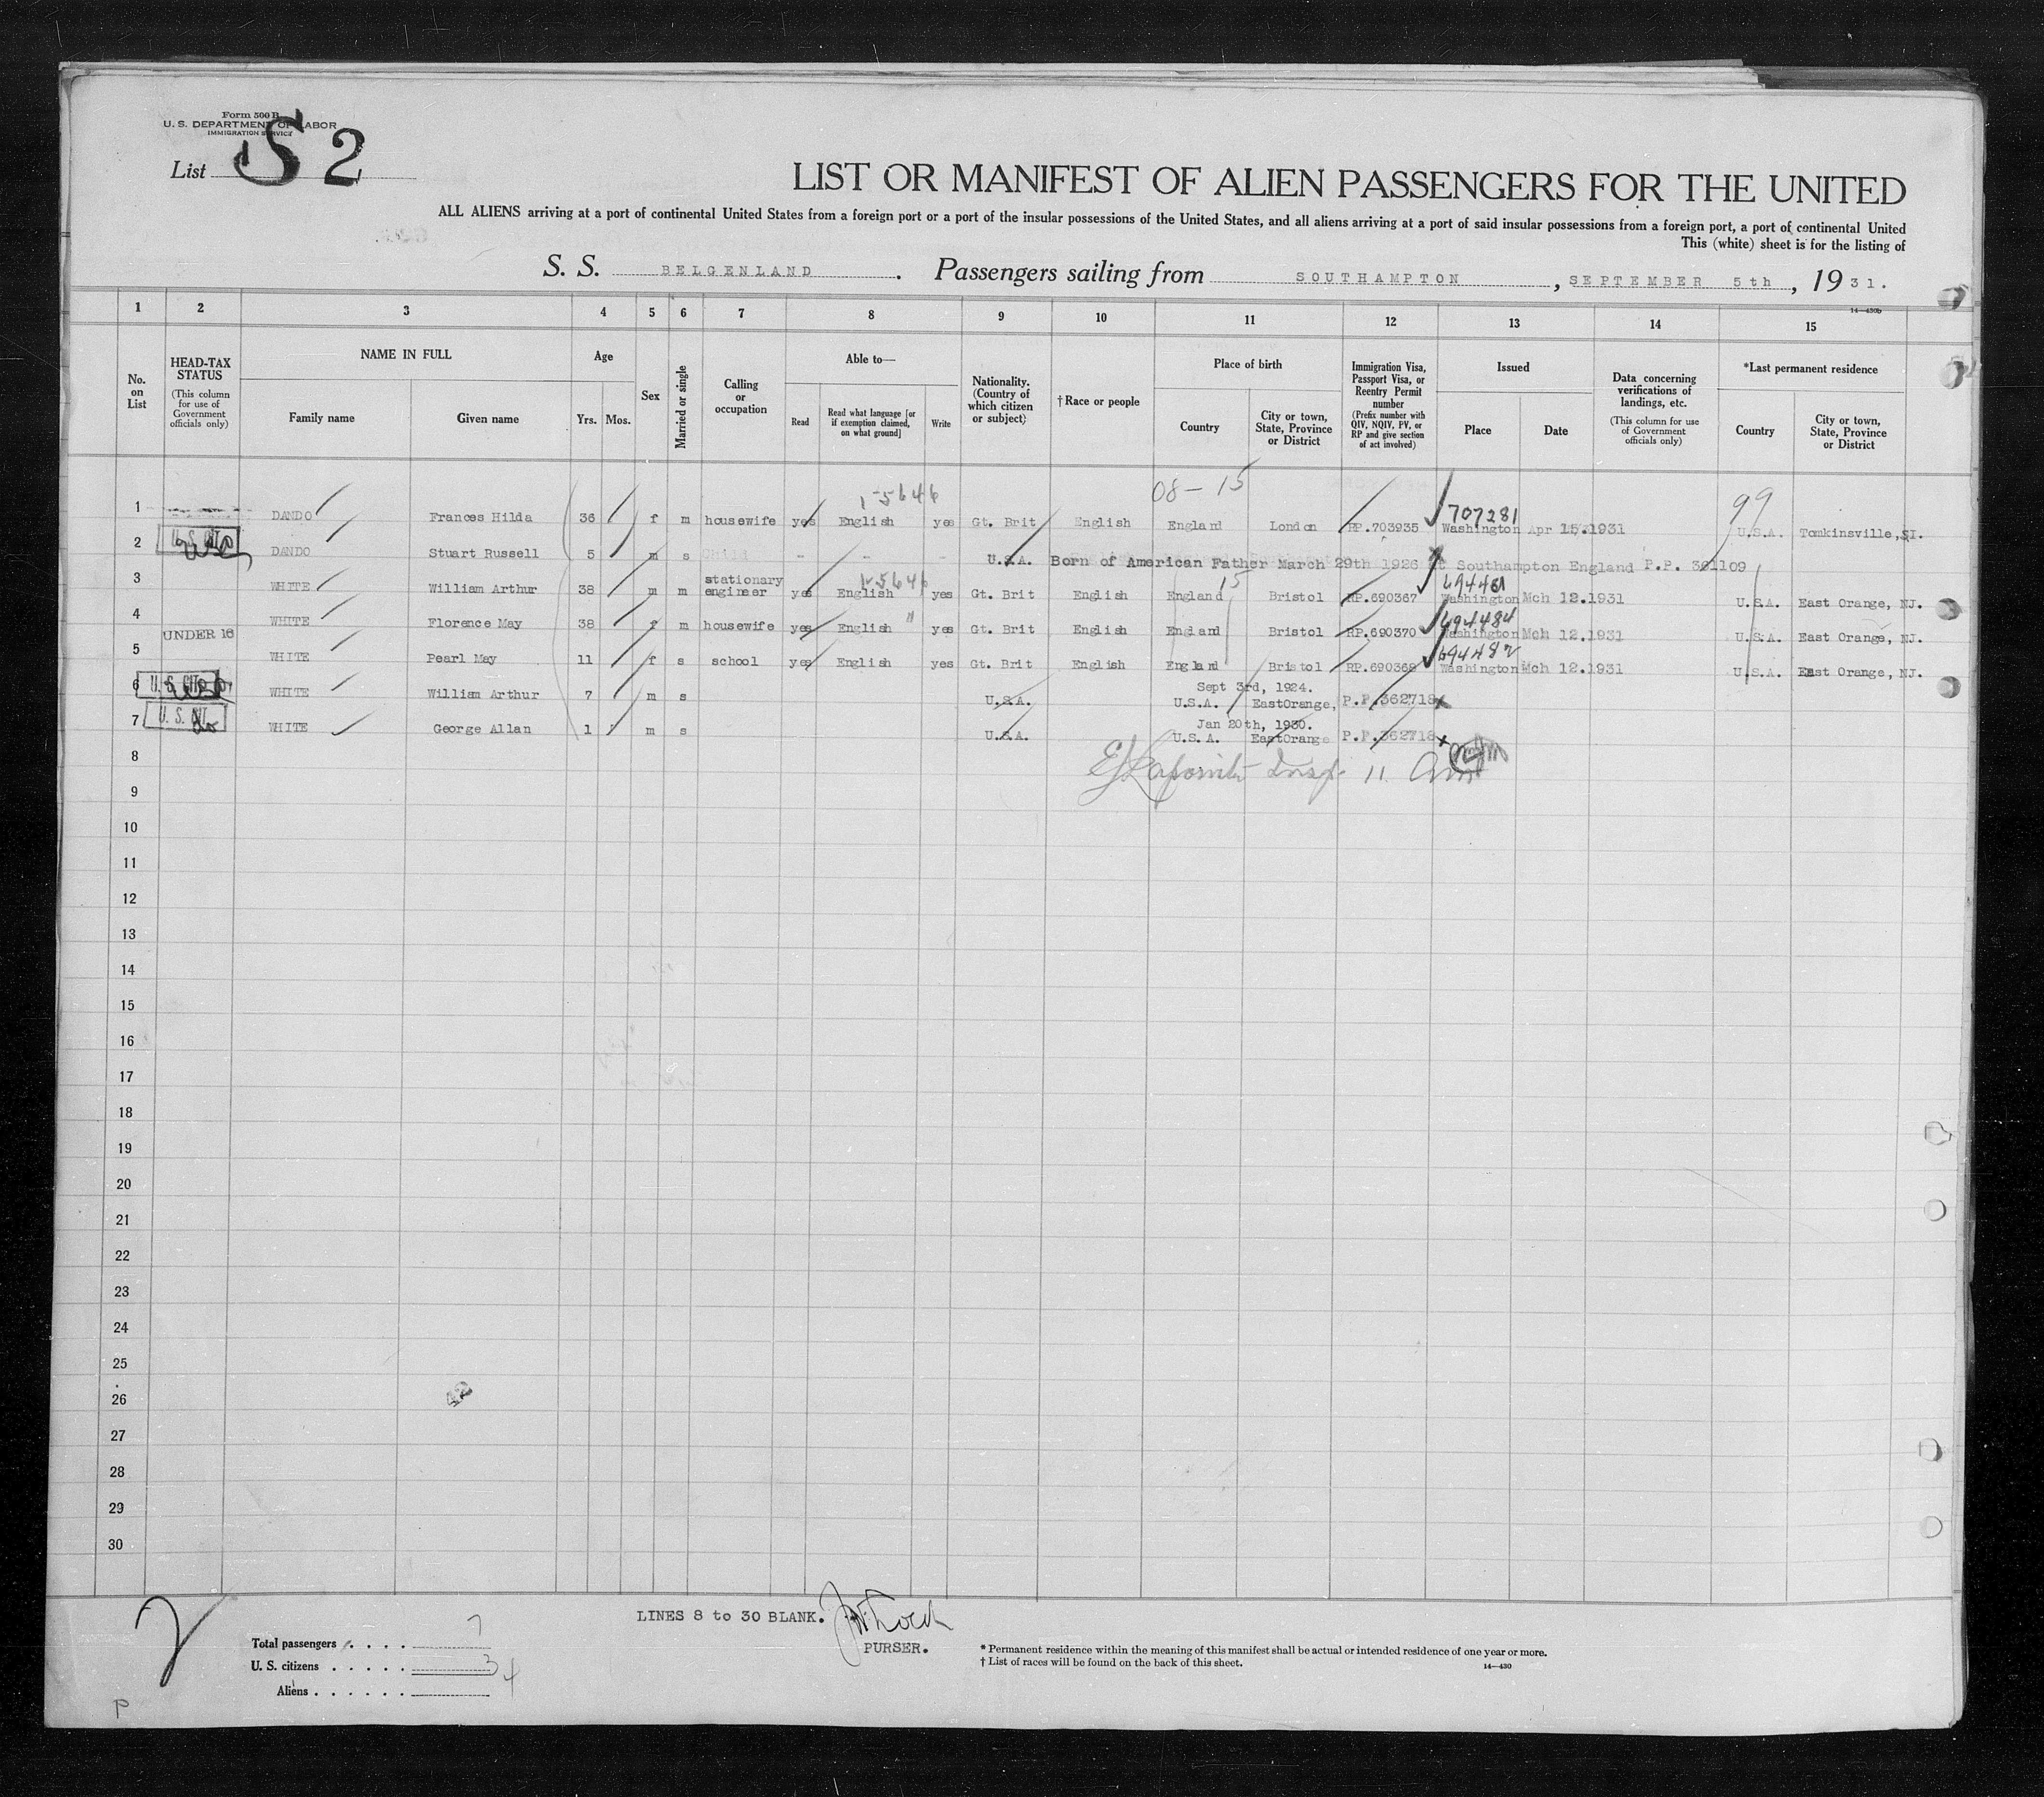 Form 500 B
U. S. DEPARTMENT OF LABOR
IMMIGRATION SERVICE
List S 2
LIST OR MANIFEST OF ALIEN PASSENGERS FOR THE UNITED
ALL ALIENS arriving at a port of continental United States from a foreign port or a port of the insular possessions of the United States, and all aliens arriving at a port of said insular possessions from a foreign port, a port of continental United
This (white) sheet is for the listing of
S. S. BELGENLAND. Passengers sailing from SOUTHAMPTON, SEPTEMBER 5th, 1931.
14—450b
1 2 3 4 5 6 7 8 9 10 11 12 13 14 15
No. on List
HEAD-TAX STATUS (This column for use of Government officials only)
NAME IN FULL
Family name
Given name
Age
Yrs. Mos.
Sex
Married or single
Calling or occupation
Able to—
Read
Read what language [or if exemption claimed, on what ground]
Write
Nationality. (Country of which citizen or subject)
† Race or people
Place of birth
Country
City or town, State, Province or District
Immigration Visa, Passport Visa, or Reentry Permit number (Prefix number with QIV, NQIV, PV, or RP and give section of act involved)
Issued
Place
Date
Data concerning verifications of landings, etc. (This column for use of Government officials only)
*Last permanent residence
Country
City or town, State, Province or District
1-5646 08-15 707281 99
1 DANDO Frances Hilda 36 f m housewife yes English yes Gt. Brit English England London RP.703935 Washington Apr 15.1931 U.S.A. Tomkinsville, SI.
2 U. S. CIT. DANDO Stuart Russell 5 m s Child - - - U.S.A. Born of American Father March 29th 1926 at Southampton England P.P. 391109
1-5646 15 694481
3 WHITE William Arthur 38 m m stationary engineer yes English yes Gt. Brit English England Bristol RP.690367 Washington Mch 12.1931 U.S.A. East Orange, NJ.
" 694484
4 WHITE Florence May 38 f m housewife yes English yes Gt. Brit English England Bristol RP.690370 Washington Mch 12.1931 U.S.A. East Orange, NJ.
UNDER 16 694482
5 WHITE Pearl May 11 f s school yes English yes Gt. Brit English England Bristol RP.690368 Washington Mch 12.1931 U.S.A. East Orange, NJ.
Sept 3rd, 1924.
6 U. S. CIT. WHITE William Arthur 7 m s U.S.A. U.S.A. EastOrange, P.P.362718x
Jan 20th, 1930.
7 U. S. CIT. WHITE George Allan 1 m s U.S.A. U.S.A. EastOrange P.P.362718x
8
Insp. 11 Am
9
10
11
12
13
14
15
16
17
18
19
20
21
22
23
24
25
26
27
28
29
30
LINES 8 to 30 BLANK.
PURSER.
2
Total passengers . . . . 7
U. S. citizens . . . . . 3
Aliens . . . . . . 4
* Permanent residence within the meaning of this manifest shall be actual or intended residence of one year or more.
† List of races will be found on the back of this sheet.
14—430
P